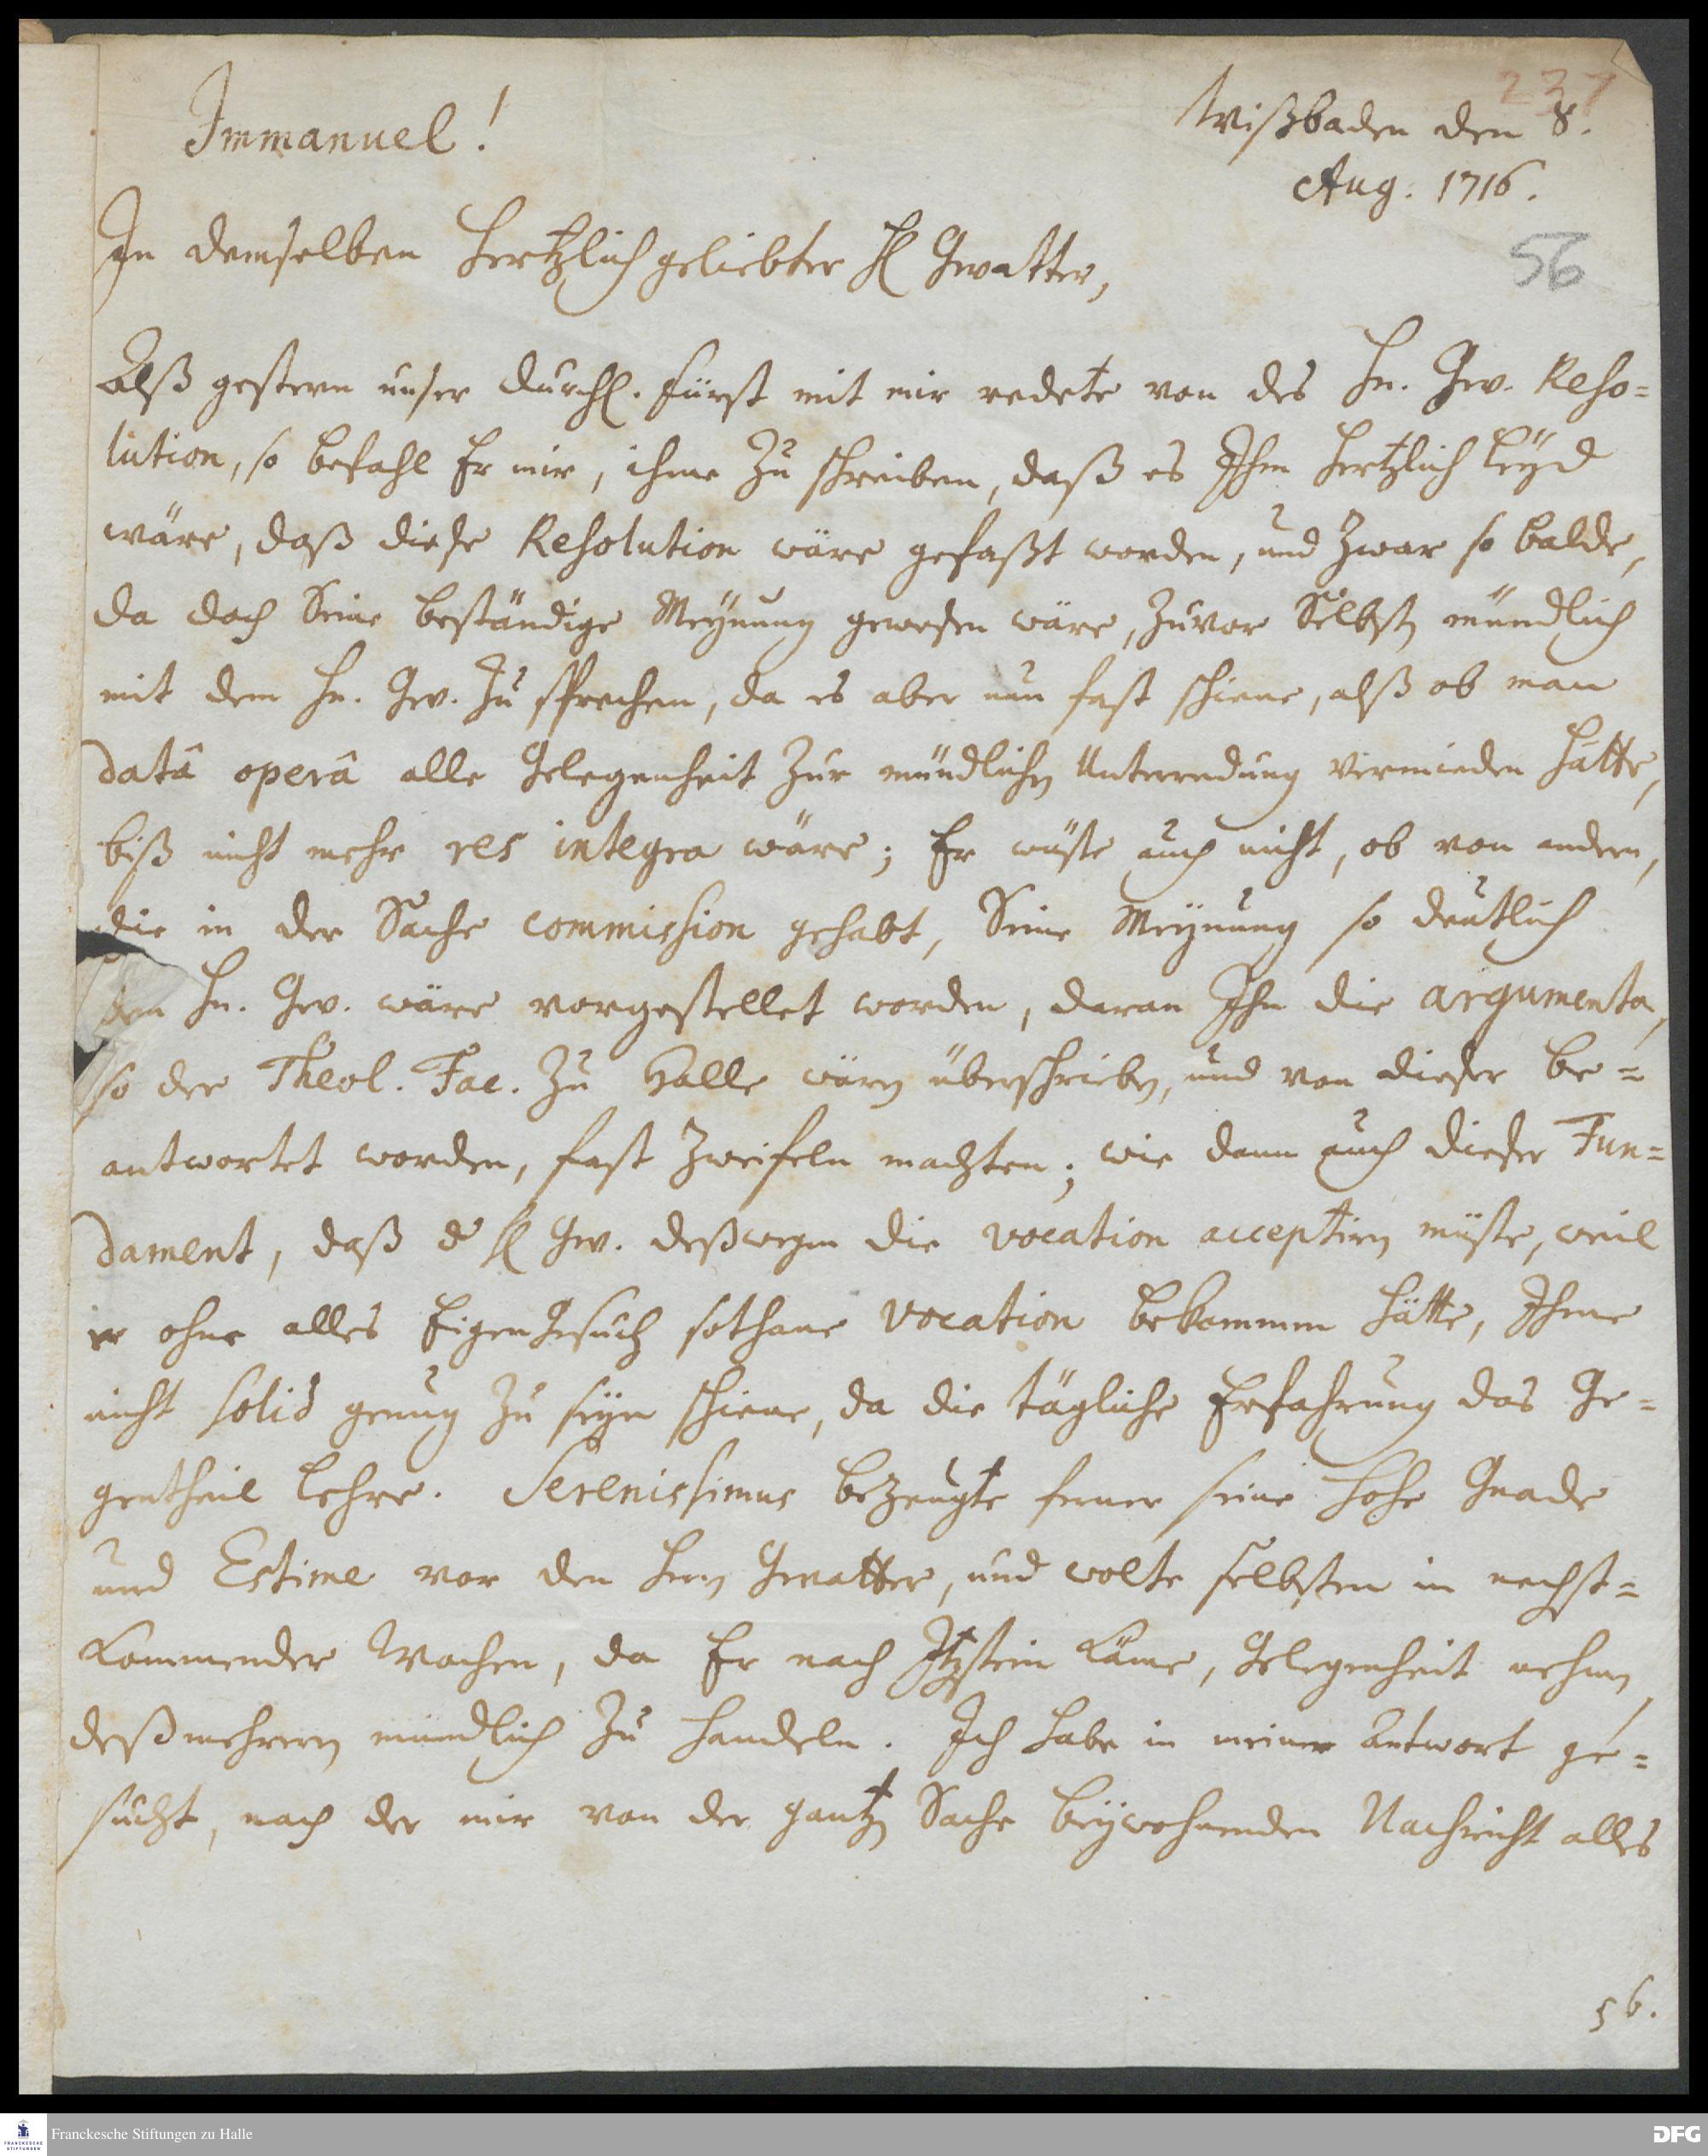 237
Immanuel!
Wißbaden den 8.
Aug. 1716.
56
In demselben Hertzlich geliebter H Gevatter,
Alß gestern unser Durchl. Fürst mit mir redete von des Hn. Gev. Reso-
lution, so befahl Er mir, ihme zu schreiben, daß es Ihm hertzlich leyd
wäre, daß diese Resolution wäre gefaßt worden, und zwar so balde,
da doch Seine beständige Meynung gewesen wäre, zuvor Selbst mündlich
mit dem Hn. Gev. zu sprechen, da es aber nun fast schiene, alß ob man
datâ operâ alle Gelegenheit zur mündlichen Unterredung vermieden hätte,
biß nicht mehr res integra wäre; Er wüste auch nicht, ob von andern,
die in der Sache commission gehabt, Seine Meynung so deutlich
dem Hn. Gev. wäre vorgestellet worden, daran Ihn die argumenta,
so der Theol. Fac. zu Halle wären überschrieben, und von dieser be-
antwortet worden, fast zweifeln machten; wie dann auch dieser Fun-
dament, daß d H Gev. deßwegen die vocation acceptiren müste, weil
er ohne alles Eigen Gesuch sothane vocation bekommen hätte, Ihme
nicht solid genug zu seyn schiene, da die tägliche Erfahrung das Ge-
gentheil lehre. Serenissimus bezeugte ferner seine hohe Gnade
und Estime vor den Hern Gevatter, und wolte selbsten in nechst-
kommender Wochen, da Er nach Itzstein käme, Gelegenheit nehmen,
deßmehrern mündlich zu handeln. Ich habe in meiner Antwort ge-
sucht, nach der mir von der gantzen Sache beywohnenden Nachricht alles
56.
Franckesche Stiftungen zu Halle
FRANCKESCHE
STIFTUNGEN
DFG